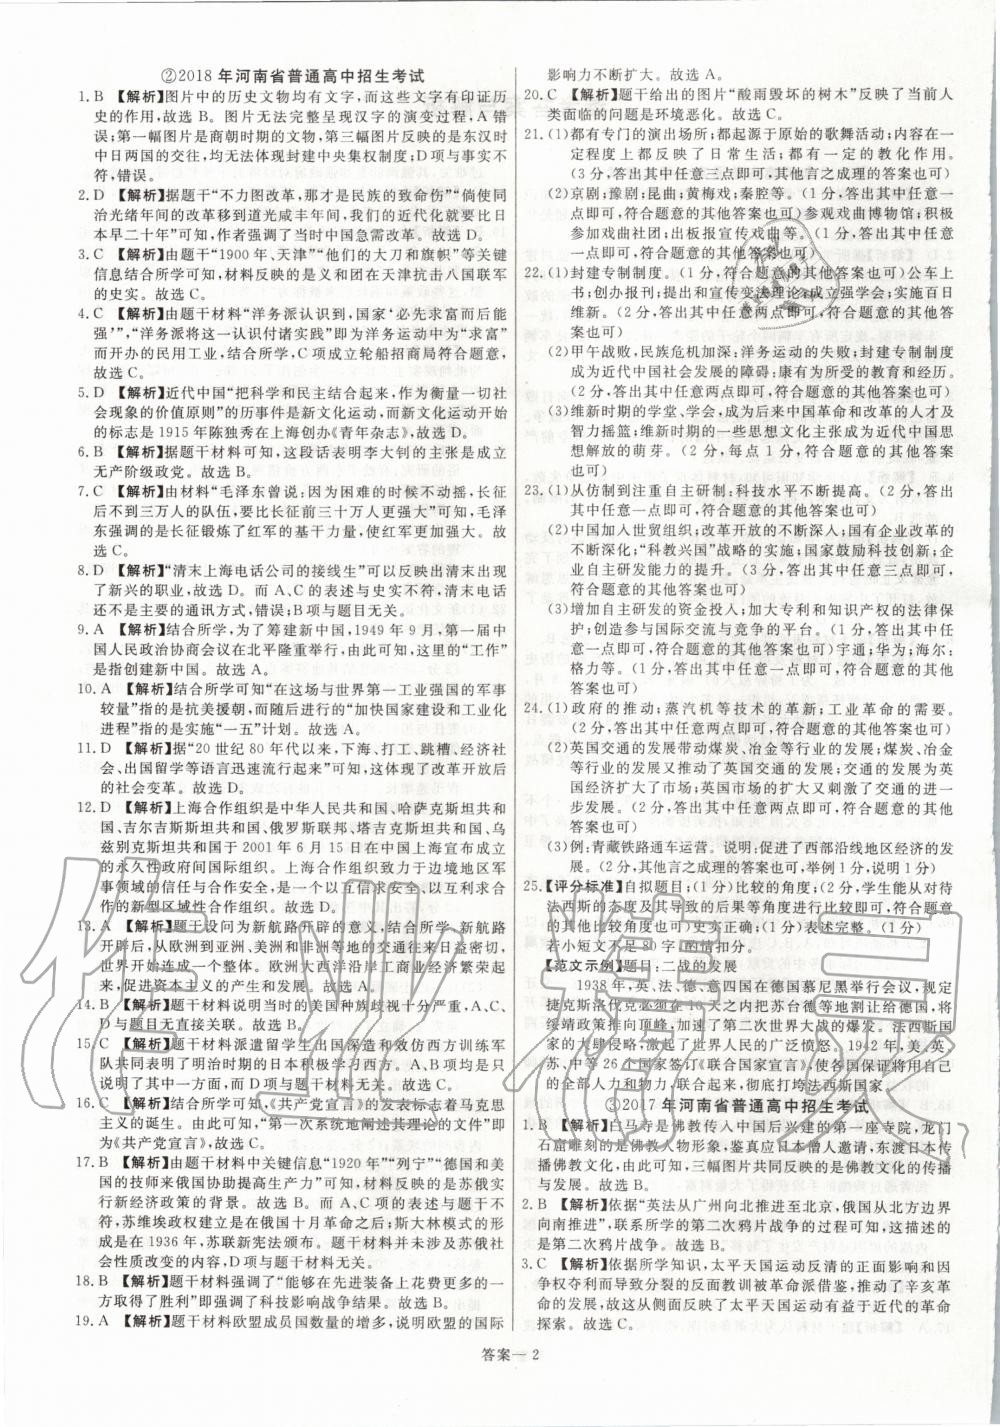 ②2018年河南省普通高中招生考试
1. B 【解析】图片中的历史文物均有文字,而这些文字有印证历
史的作用,故选B。图片无法完整呈现汉字的演变过程,A错
误;第一幅图片是商朝时期的文物,第三幅图片反映的是东汉时
中日两国的交往,均无法体现封建中央集权制度;D项与事实不
符,错误。
2. D 【解析】据题干“不力图改革,那才是民族的致命伤”“倘使同
治光绪年间的改革移到道光咸丰年间,我们的近代化就要比日
本早二十年”可知,体现了当时中国急需改革。故选D。
3. C 【解析】由题干“1900年、天津”“他们的大刀和旗帜”等关键
信息结合所学可知,材料反映的是义和团在天津抗击八国联军
的史实。故选C。
4. C 【解析】由题干材料“洋务派认识到,国家‘必先求富而后能
强’”,“洋务派将这一认识付诸实践”即为洋务运动中为“求富”
而开办的民用工业,结合所学,C项成立轮船招商局符合题意,
故选C。
5. D 【解析】近代中国“把科学和民主结合起来,作为衡量一切社
会现象的价值原则”的历事件是新文化运动,而新文化运动开始
的标志是1915年陈独秀在上海创办《青年杂志》。故选D。
6. B 【解析】据题干材料可知,这段话表明李大钊的主张是成立
无产阶级政党。故选B。
7. C 【解析】由材料“毛泽东曾说:因为困难的时候不动摇,长征
后不到三万人的队伍,要比长征前三十万人更强大”可知,毛泽
东强调的是长征锻炼了红军的基干力量,使红军更加强大。故
选C。
8. D 【解析】“清末上海电话公司的接线生”可以反映出清末出现
了新兴的职业,故选D。而A、C的表述与史实不符,清末电话
还不是主要的通讯方式,错误;B项与题目无关。
9. A 【解析】结合所学,为了筹建新中国,1949年9月,第一届中
国人民政治协商会议在北平隆重举行,由此可知,这里的“工作”
是指创建新中国。故选A。
10. A 【解析】结合所学可知“在这场与世界第一工业强国的军事
较量”指的是抗美援朝,而随后进行的“加快国家建设和工业化
进程”指的是实施“一五”计划。故选A。
11. D 【解析】据“20世纪80年代以来,下海、打工、跳槽、经济社
会、出国留学等语言迅速流行起来”可知,这体现了改革开放后
的社会变革。故选D。
12. D 【解析】上海合作组织是中华人民共和国、哈萨克斯坦共和
国、吉尔吉斯斯坦共和国、俄罗斯联邦、塔吉克斯坦共和国、乌
兹别克斯坦共和国于2001年6月15日在中国上海宣布成立
的永久性政府间国际组织。上海合作组织致力于边境地区军
事领域的信任与合作安全,是一个以互信求安全、以互利求合
作的新型区域性合作组织。故选D。
13. A 【解析】题干设问为新航路开辟的意义,结合所学,新航路
开辟后,从欧洲到亚洲、美洲和非洲等地的交通往来日益密切,
世界开始连成一个整体。欧洲大西洋沿岸工商业经济繁荣起
来,促进资本主义的产生和发展。故选A。
14. B 【解析】题干材料说明当时的美国种族歧视十分严重,A、C、
D与题目无直接关联。故选B。
15. C 【解析】题干材料派遣留学生出国深造和效仿西方训练军
队共同表明了明治时期的日本积极学习西方。A、B项均是只
说了其中一方面,而D项与题目无关。故选C。
16. C 【解析】结合所学可知,《共产党宣言》的发表标志着马克思
主义的诞生。由此可知,“第一次系统地阐述其理论的文献”即
为《共产党宣言》。故选C。
17. B 【解析】由题干材料中关键信息“1920年”“列宁”“德国和美
国的技师来俄国协助提高生产力”可知,材料反映的是苏俄实
行新经济政策的背景。故选B。而A、C项的表述与题干不
符,苏维埃政权建立是在俄国十月革命之后;斯大林模式的形
成是在1936年,苏联新宪法颁布。由此两项并未涉及苏俄社
会性质改变的内容,D项与题干无关。
18. B 【解析】题干材料强调了“能够在先进装备上花费更多的一
方取得了胜利”即强调了科技影响战争结果。故选B。
19. A 【解析】题干材料欧盟成员国数量的增多,说明欧盟的国际
影响力不断扩大。故选A。
20. C 【解析】题干给出的图片“酸雨毁坏的树木”反映了当前人
类面临的问题是环境恶化。故选C。
21. (1)都有专门的演出场所;都起源于原始的歌舞活动;内容在一
定程度上都反映了日常生活;都有一定的教化作用。
(3分,答出其中任意三点即可,其他言之成理的答案也可)
(2)京剧;豫剧;昆曲;黄梅戏;秦腔等。(1分,答出其中任意一
点即可,符合题意的其他答案也可)参观戏曲博物馆;积极
参加戏曲社团;出板报宣传戏曲等。(1分,答出其中任意
一点即可,符合题意的其他答案也可)
22. (1)封建专制制度。(1分,符合题意的其他答案也可)公车上
书;创办报刊;提出和宣传变法理论;成立强学会;实施百日
维新。(2分,答出其中任意两点即可,符合题意的其他答
案也可)
(2)甲午战败,民族危机加深;洋务运动的失败;封建专制制度
成为近代中国社会发展的障碍;康有为所受的教育和经历。
(2分,答出其中任意两点即可,符合题意的其他答案也可)
(3)维新时期的学堂、学会,成为后来中国革命和改革的人才及
智力摇篮;维新时期的一些思想文化主张成为近代中国思
想解放的萌芽。(2分,每点1分,符合题意的其他答案
也可)
23. (1)从仿制到注重自主研制;科技水平不断提高。(2分,答出其
中任意一点即可,符合题意的其他答案也可)
(2)中国加入世贸组织;改革开放的不断深入;国有企业改革的
不断深化;“科教兴国”战略的实施;国家鼓励科技创新;企
业自主研发能力的提升。(3分,答出其中任意三点即可,
符合题意的其他答案也可)
(3)增加自主研发的资金投入;加大专利和知识产权的法律保
护;创造参与国际交流与竞争的平台。(1分,答出其中任意
一点即可,符合题意的其他答案也可)宇通;华为;海尔;
格力等。(1分,答出其中任意一点即可,符合题意的其他
答案也可)
24. (1)政府的推动;蒸汽机等技术的革新;工业革命的需要。
(2分,答出其中任意两点即可,符合题意的其他答案也可)
(2)英国交通的发展带动煤炭、冶金等行业的发展;煤炭、冶金
等行业又推动了英国交通的发展;交通的发展为英国市场
的扩大提供了条件;英国市场的扩大又刺激了交通的进一
步发展。(2分,答出其中任意两点即可,符合题意的其他
答案也可)
(3)例:青藏铁路通车运营。说明:促进了西部沿线地区经济的发
展。(2分,其他言之成理的答案也可,举例1分,说明1分)
25. 【评分标准】自拟题目;(1分)比较的角度;(2分,学生能从对待
法西斯的态度及其导致的后果等角度进行比较即可,符合题意
的其他比较角度也可)史实正确;(1分)表述完整。(1分)
若小短文不足80字,酌情扣分。
【范文示例】题目:二战的发展
1938年,英、法、德、意四国在德国慕尼黑举行会议,规定
捷克斯洛伐克必须在10天之内把苏台德等地割让给德国,将
绥靖政策推向顶峰,加速了第二次世界大战的爆发。法西斯国
家的大肆侵略,激起了世界人民的广泛愤怒。1942年,美、英、
苏、中等26个国家签订《联合国家宣言》,保证用尽自己国家
的全部人力和物力,联合起来,彻底打垮法西斯国家。
③2017年河南省普通高中招生考试
1. B 【解析】白马寺是佛教传入中国后兴建的第一座寺院,龙门
石窟雕刻的是佛教人物形象,鉴真应日本僧人邀请,东渡日本传
播佛教文化,由此可知,三幅图片共同反映的是佛教文化的传播
与发展。故选B。
2. B 【解析】依据“英法从广州向北推进至北京,俄国从北方边界
向南推进”,联系所学的第二次鸦片战争可知,这一描述的是
第二次鸦片战争。故选B。
3. C 【解析】依据所学知识,太平天国运动反清的正面影响和因
争权夺利而导致分裂的反面教训被革命派借鉴,推动了辛亥革
命的发展,故这从侧面反映了太平天国运动有益于近代的革命
探索。故选C。
答案— 2